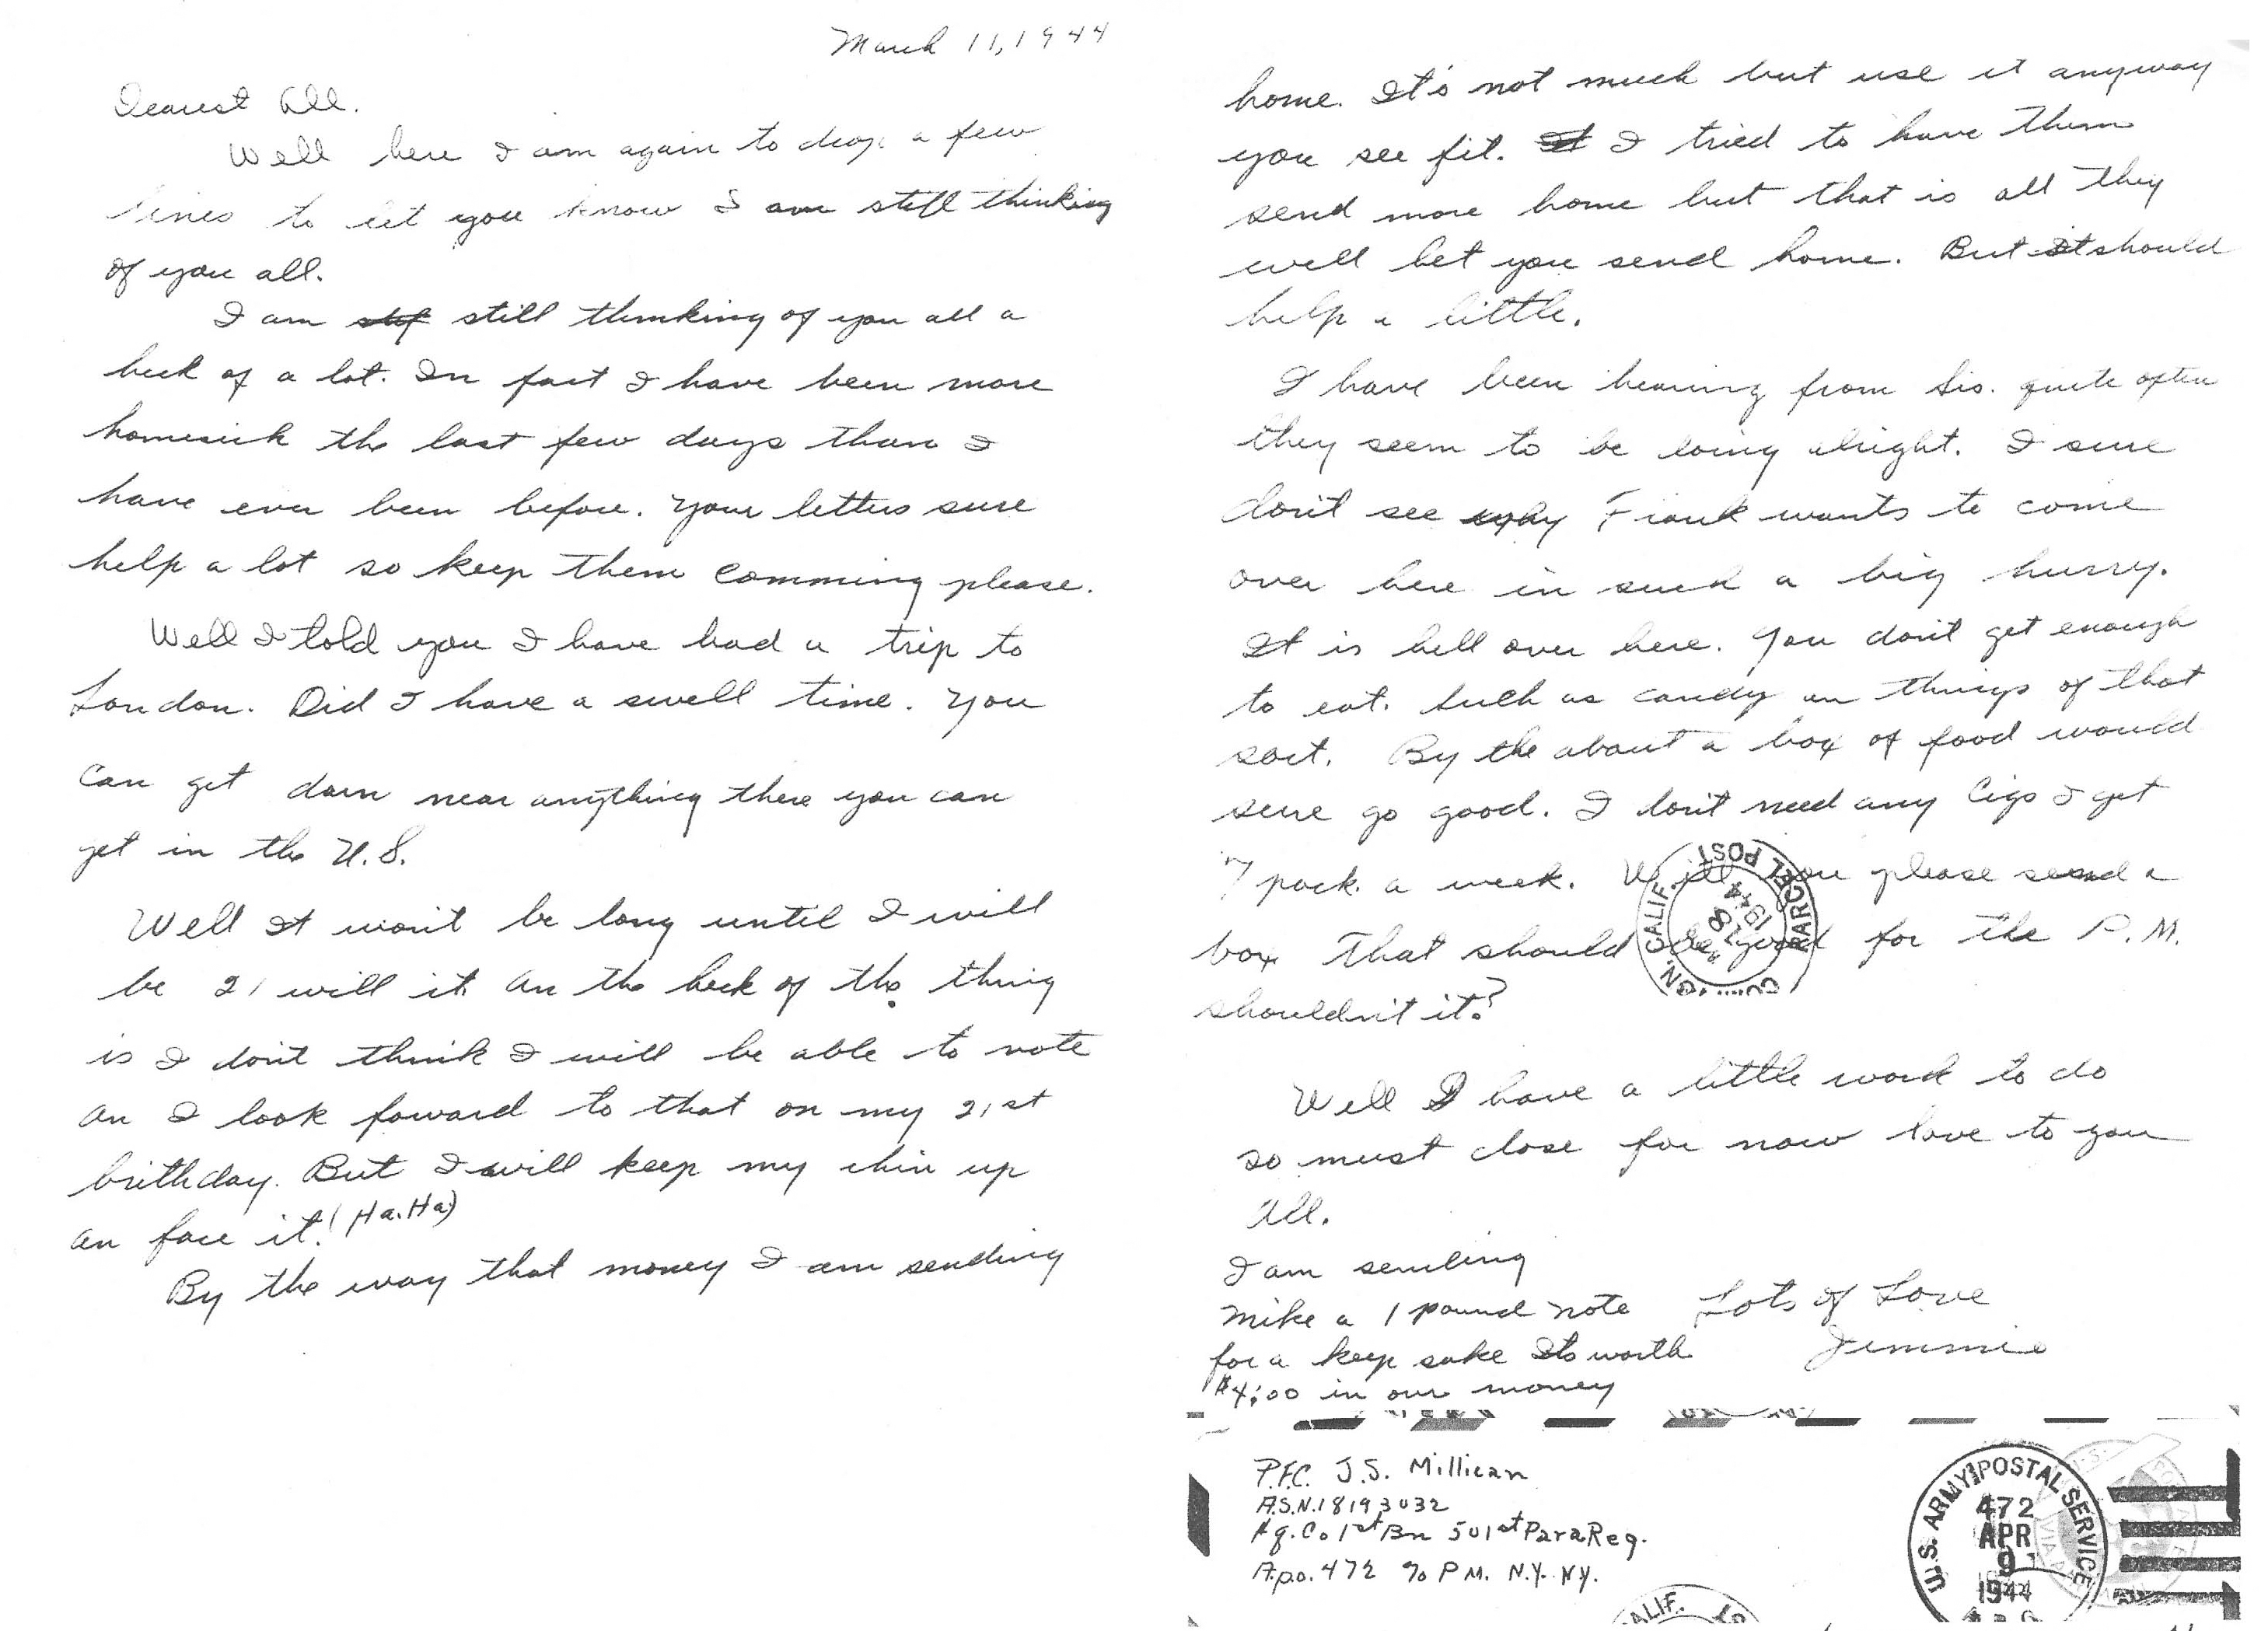 March 11, 1944
Dearest All.
Well here I am again to drop a few
lines to let you know I am still thinking
of you all.
I am still thinking of you all a
heck of a lot. In fact I have been more
homesick the last few days than I
have ever been before. Your letters sure
help a lot so keep them comming please.
Well I told you I have had a trip to
London. Did I have a swell time. You
can get darn near anything there you can
get in the U.S.
Well It won't be long until I will
be 21 will it. An the heck of the thing
is I don't think I will be able to vote
an I look foward to that on my 21st
birthday. But I will keep my chin up
an face it! (Ha. Ha)
By the way that money I am sending
home. It's not much but use it anyway
you see fit. I tried to have them
send more home but that is all they
will let you send home. But It should
help a little.
I have been hearing from Sis. quite often
they seem to be doing alright. I sure
don't see why Frank wants to come
over here in such a big hurry.
It is hell over here. You don't get enough
to eat. Such as candy an things of that
sort. By the about a box of food would
sure go good. I don't need any Cigs I get
7 pack a week. Will you please send a
box that should be good for the P.M.
shouldn't it?
Well I have a little work to do
so must close for now love to you
All.
I am sending
Mike a 1 pound note
for a keep sake Its worth
$4:00 in our money
Lots of Love
Jimmie
CALIF. PARCEL POST
1944
P.F.C. J.S. Millican
A.S.N. 18193032
Hq. Co 1st Bn 501st Para Reg.
A.p.o. 472 % P M. N.Y. N.Y.
U.S. ARMY POSTAL SERVICE
472
APR
9
1944
CALIF.